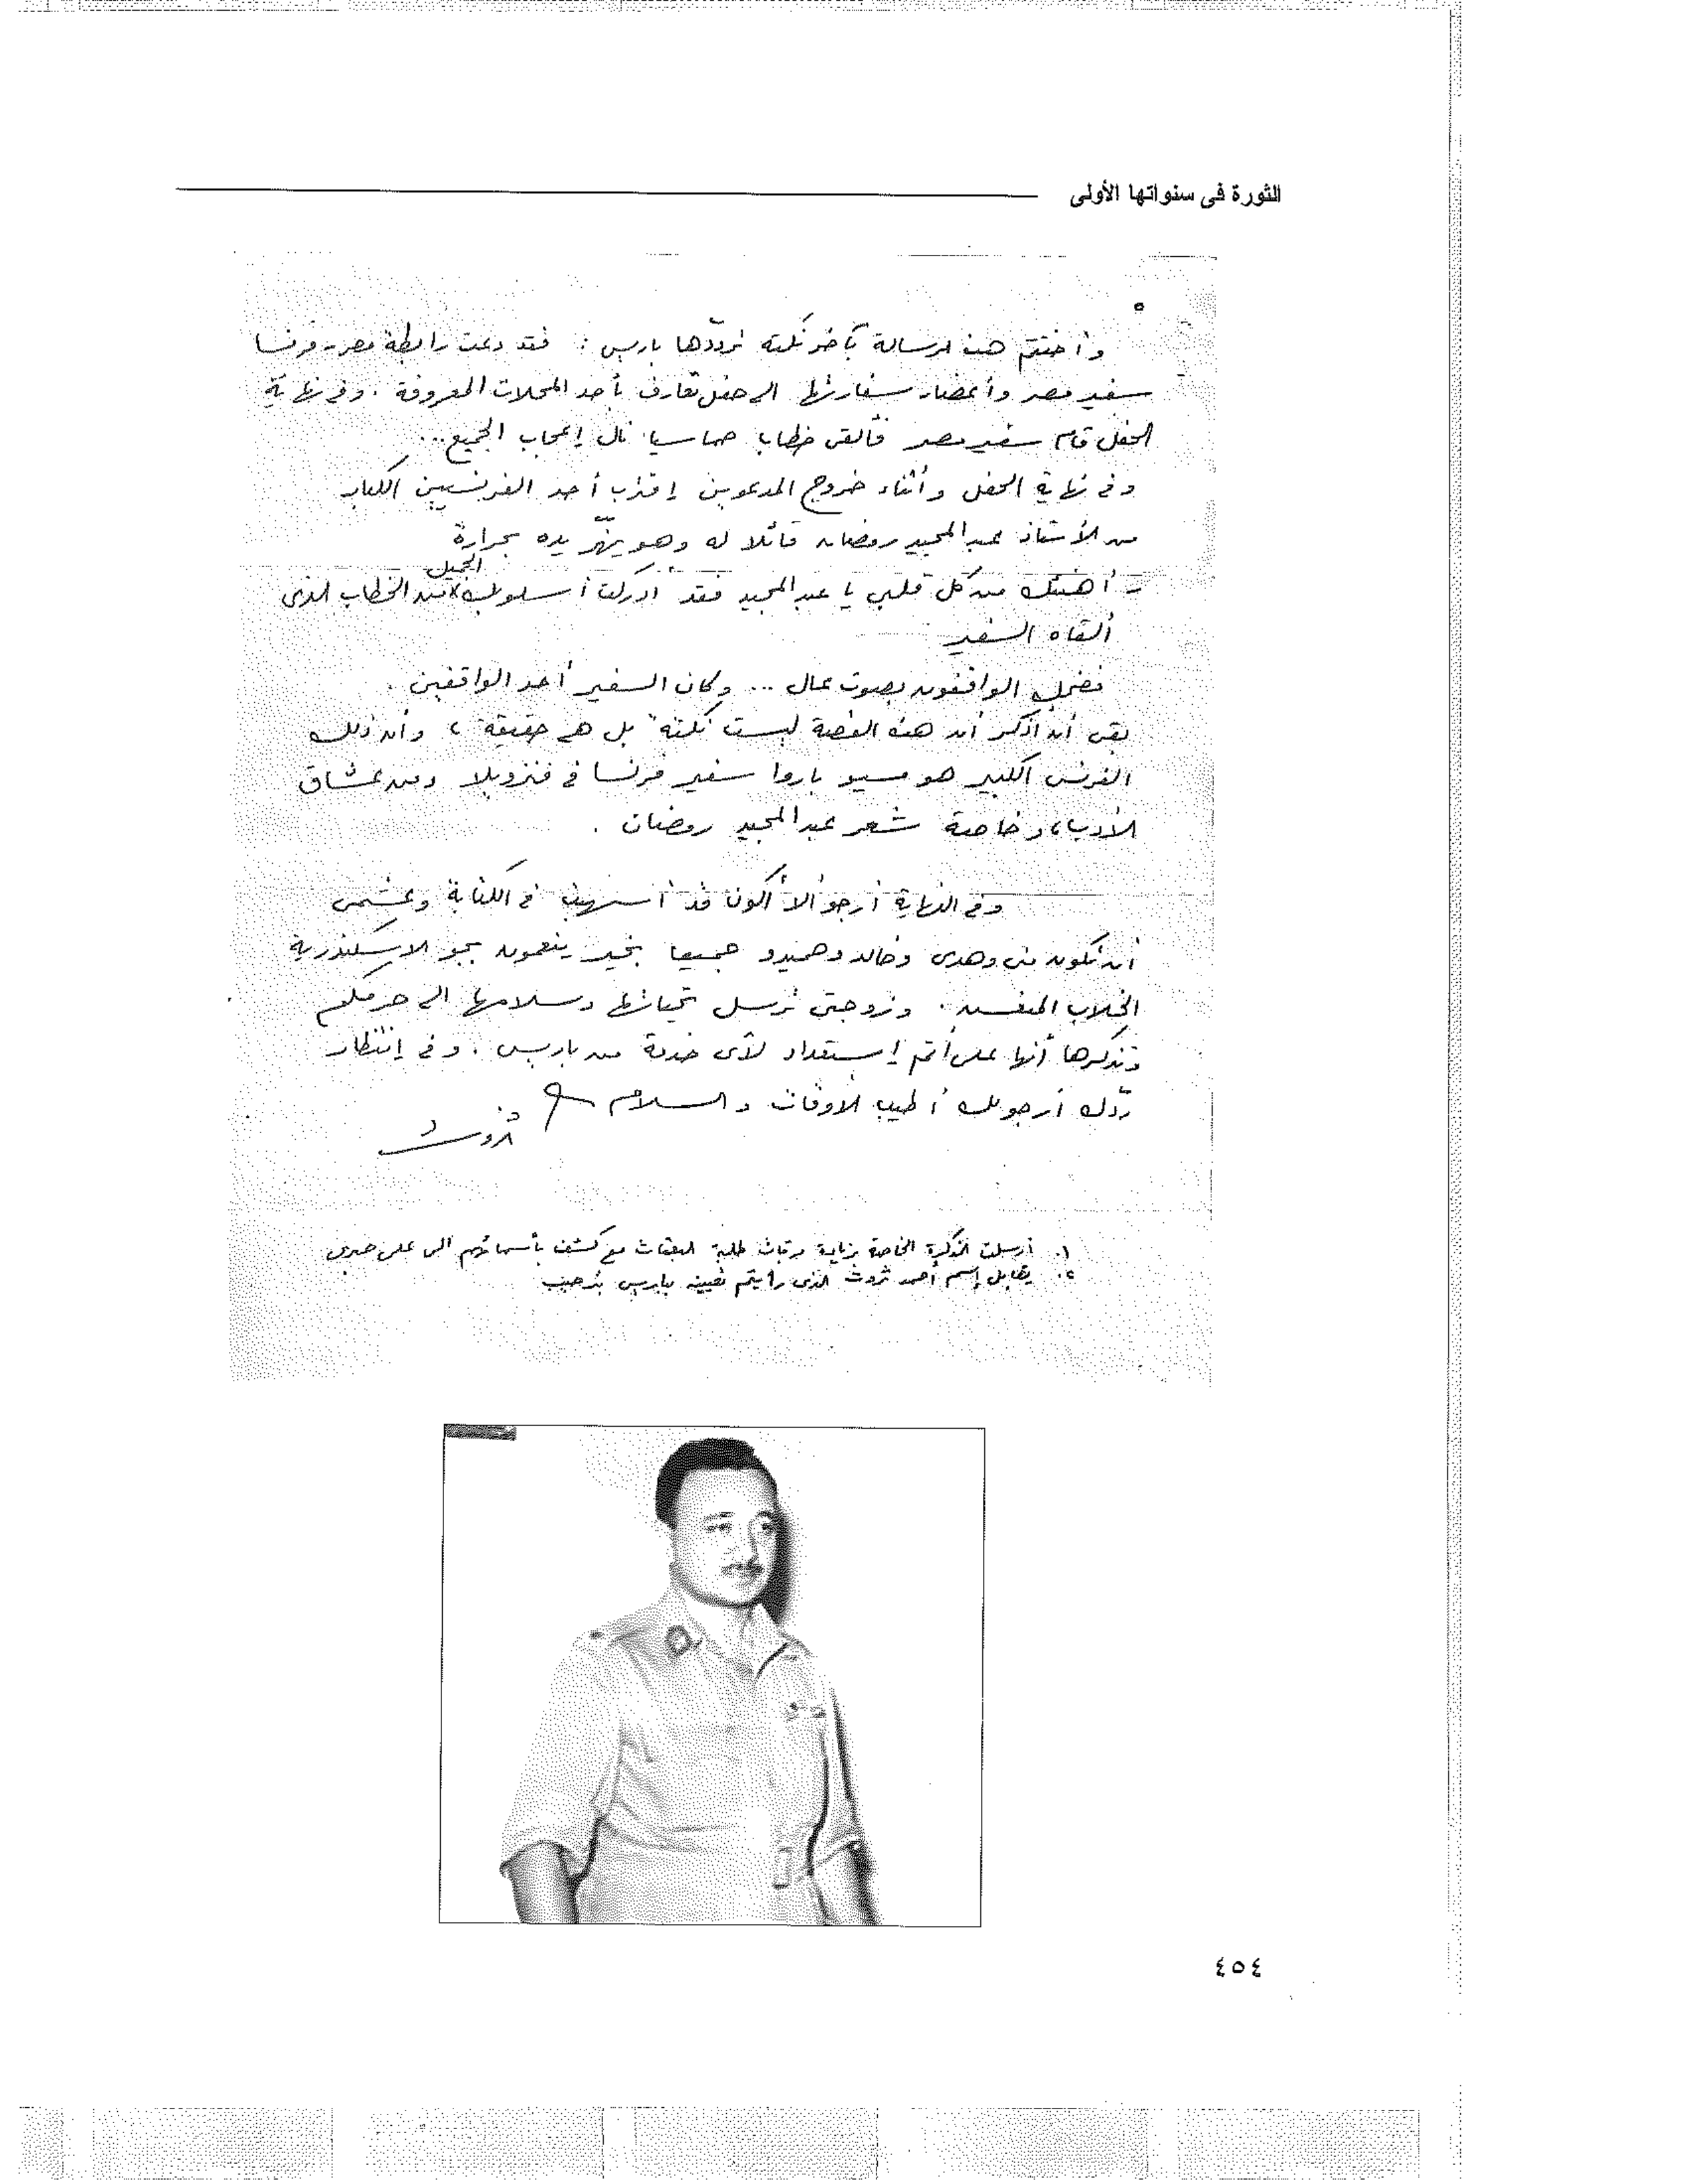 الثورة فى سنواتها الأولى
٥
وأختتم هذه الرسالة بآخر نكتة ترددها باريس : فقد دعت رابطة مصر - فرنسا
سفير مصر وأعضاء سفارتها الى حفل تعارف بأحد المحلات المعروفة . وفى نهاية
الحفل قام سفير مصر فألقى خطابا حماسيا نال إعجاب الجميع ...
وفى نهاية الحفل وأثناء خروج المدعوين إقترب أحد الفرنسيين الكبار
من الأستاذ عبد المجيد رمضان قائلا له وهو يهزّ يده بحرارة
- أهنئك من كل قلبى يا عبد المجيد فقد أدركت أسلوبك الجميل من الخطاب الذى
ألقاه السفير
فضحك الواقفون بصوت عال ... وكان السفير أحد الواقفين .
بقى أن أذكر أن هذه القصة ليست نكتة بل هى حقيقة ، وأن ذلك
الفرنسى الكبير هو مسيو باروا سفير فرنسا فى فنزويلا ومن عشاق
الأدب ، وخاصة شعر عبد المجيد رمضان .
وفى النهاية أرجو ألا أكون قد أسهبت فى الكتابة وعشمى
أن تكون منى وهدى وخالد وحميدو جميعا بخير ينعمون بجو الاسكندرية
الخلاب المنعش . وزوجتى ترسل تحياتها وسلامها الى حرمكم
وتذكرها أنها على أتم إستعداد لأى خدمة من باريس . وفى إنتظار
ردّك أرجو لك أطيب الأوقات والسلام
ثروت
١. أرسلت المذكرة الخاصة بزيادة مرتبات طلبة البعثات مع كشف بأسمائهم الى على صبرى
٢. يقابل إسم أحمد ثروت الذى رأيتم تعيينه بباريس بترحيب
٤٥٤